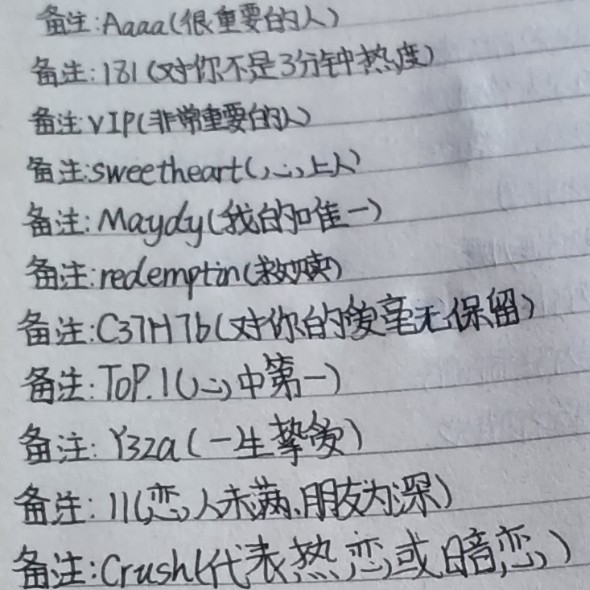 备注:Aaaa(很重要的人)
备注:181(对你不是3分钟热度)
备注:VIP(非常重要的人)
备注:sweetheart(心上人)
备注:Maydy(我的唯一)
备注:redemptin(救赎)
备注:C37H7b(对你的爱毫无保留)
备注:ToP.1(心中第一)
备注:Y32a(一生挚爱)
备注:11(恋人未满、朋友为深)
备注:Crush(代表热恋或暗恋)